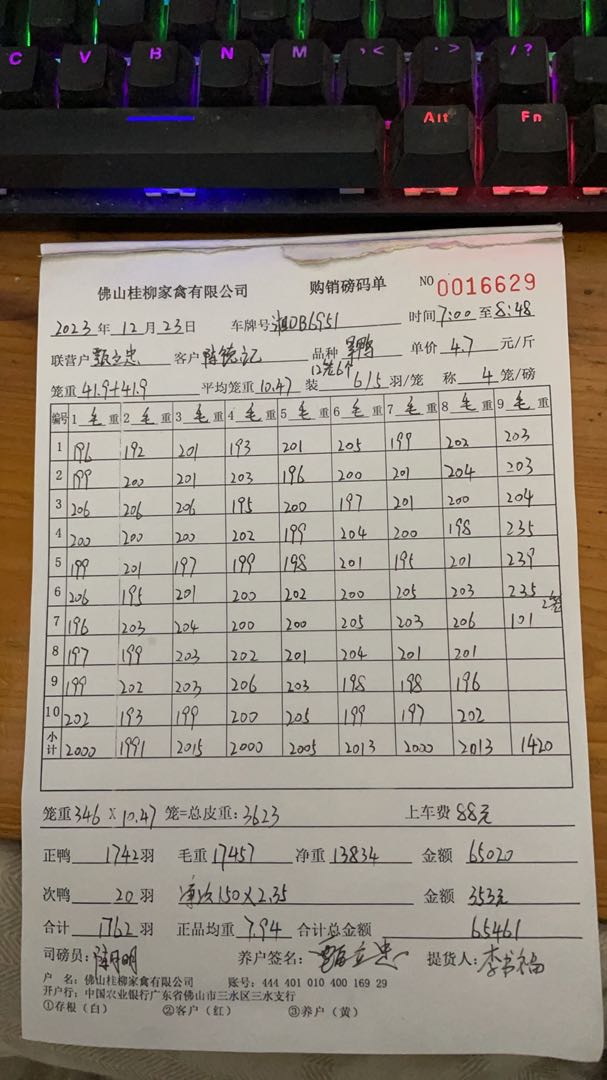 C V B N M ,< .> /?
Alt Fn
佛山桂柳家禽有限公司 购销磅码单 NO 0016629
2023年12月23日 车牌号湘DB6951 时间7:00至8:48
联营户甄立忠 客户陈德记 品种 单价4.7元/斤
12笼6个
笼重41.9+41.9 平均笼重10.47 装6/5羽/笼 称4笼/磅
编号 1毛重 2毛重 3毛重 4毛重 5毛重 6毛重 7毛重 8毛重 9毛重
1 196 192 201 193 201 205 199 202 203
2 199 200 201 203 196 200 201 204 203
3 206 206 206 195 200 197 201 200 204
4 200 200 200 202 199 204 200 198 235
5 199 201 197 199 198 201 195 201 239
6 206 195 201 200 202 200 205 203 235
2笼
7 196 203 204 200 200 205 203 206 101
8 197 199 203 202 201 204 201 201
9 199 202 203 206 203 198 198 196
10 202 193 199 200 205 199 197 202
小计 2000 1991 2015 2000 2005 2013 2000 2013 1420
笼重346×10.47笼=总皮重:3623 上车费88元
正鸭1742羽 毛重17457 净重13834 金额65020
次鸭20羽 净次150×2.35 金额353元
合计1762羽 正品均重7.94 合计总金额65461
司磅员: 养户签名:甄立忠 提货人:李书福
户 名:佛山桂柳家禽有限公司 账号:444 401 010 400 169 29
开户行:中国农业银行广东省佛山市三水区三水支行
①存根(白) ②客户(红) ③养户(黄)